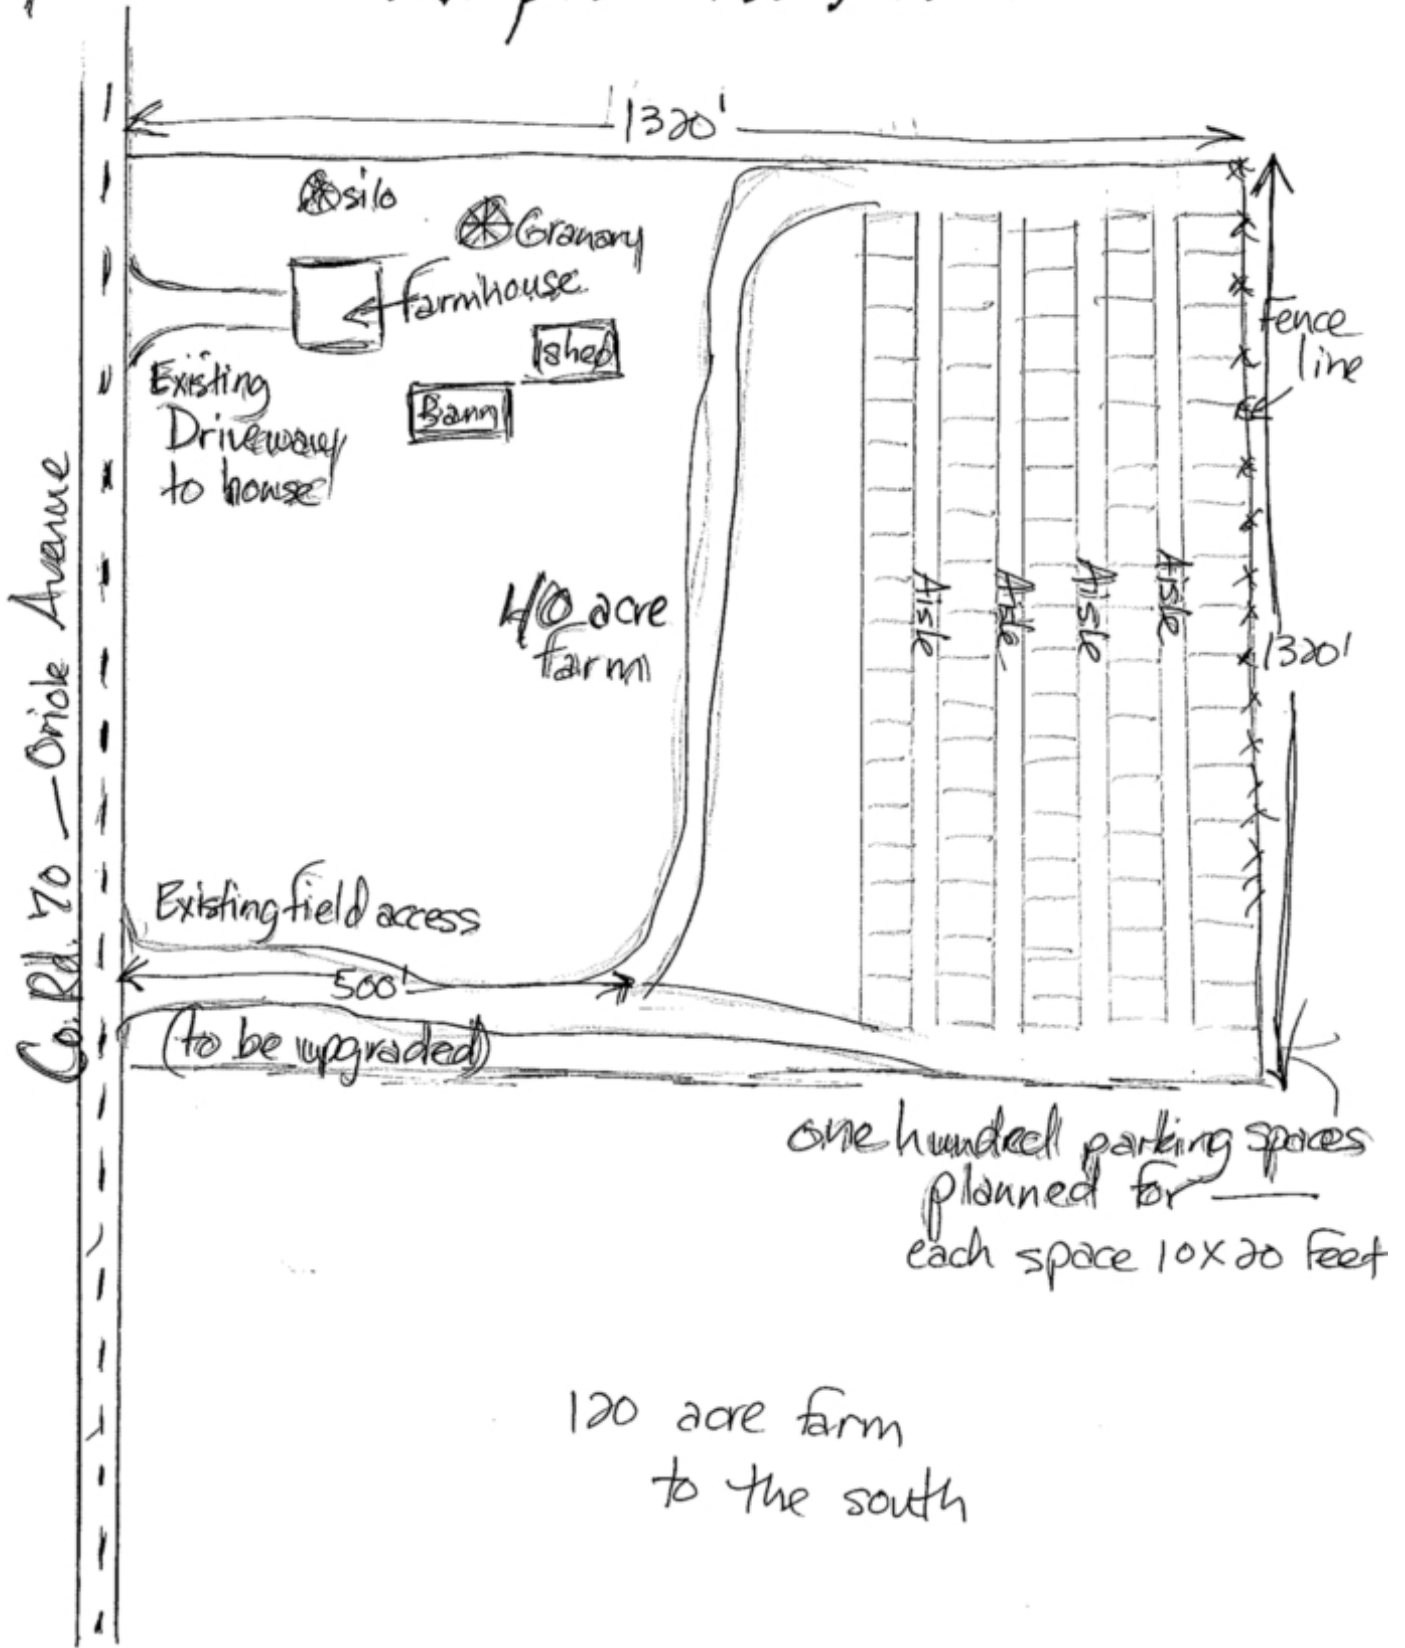 1320'
silo
Granary
Farmhouse
shed
Barn
Existing
Driveway
to house
Fence
line
Co. Rd. 70 — Oriole Avenue
40 acre
farm
Aisle
Aisle
Aisle
Aisle
1320'
Existing field access
500'
(to be upgraded)
one hundred parking spaces
planned for —
each space 10x20 Feet
120 acre farm
to the south